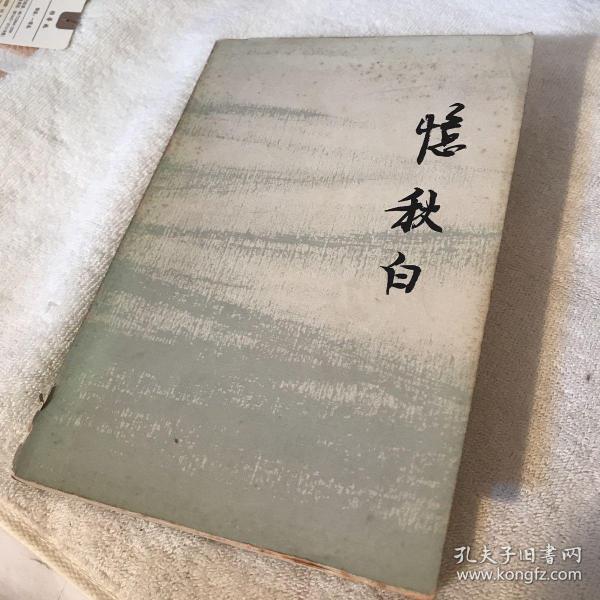 憶秋白
孔夫子旧書网
www.kongfz.com